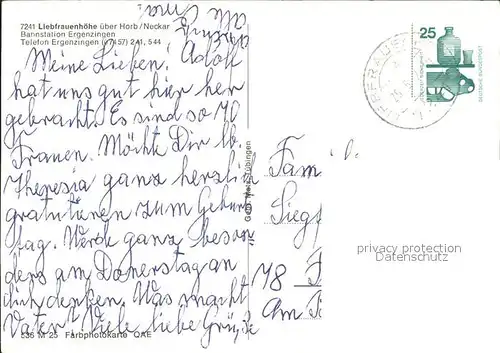 7241 Liebfrauenhöhe über Horb/Neckar
Bannstation Ergenzingen
Telefon Ergenzingen (07457) 241, 544
Meine Lieben! Adolf
hat uns gut hier her
gebracht. Es sind so 70
Frauen. Möcht Dir lb.
Theresia ganz herzlich
gratulieren zum Geburts
tag. Werde ganz beson
ders am Donerstag an
dich denken. Was macht
Vater? Viele liebe Grüße
536 M 25 Farbphotokarte QAE
Gebr. Metz, Tübingen
25
DEUTSCHE BUNDESPOST
Fam
Siegf
78
Am
privacy protection
Datenschutz